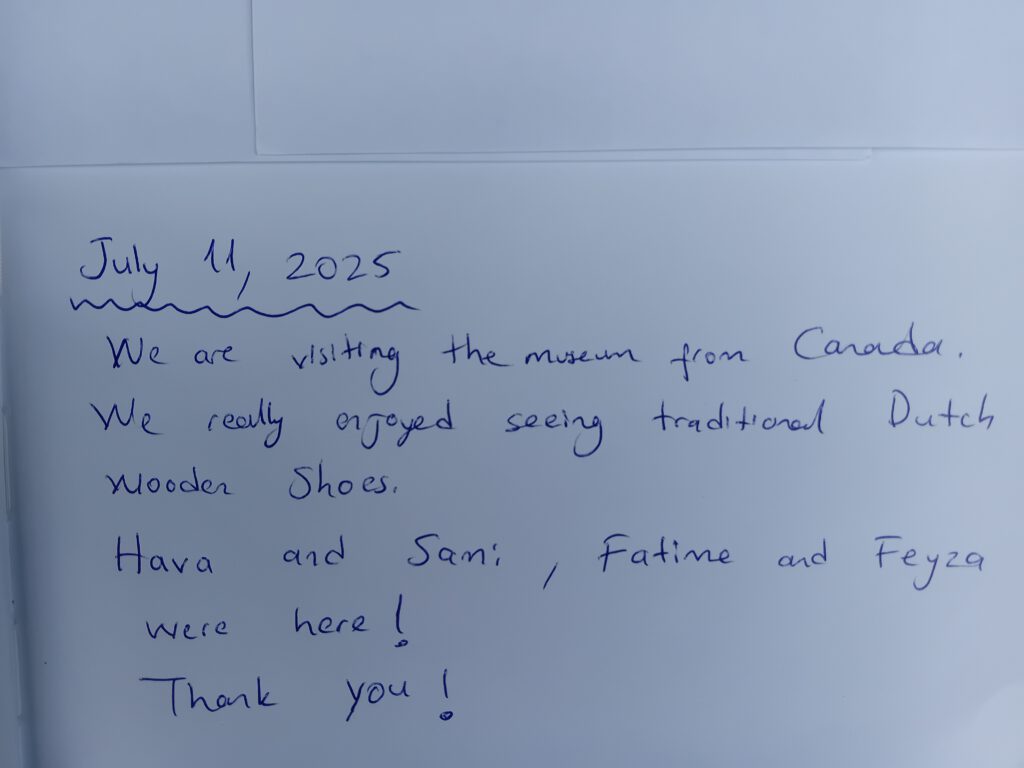 July 11, 2025
We are visiting the museum from Canada.
We really enjoyed seeing traditional Dutch
wooden Shoes.
Hava and Sami, Fatime and Feyza
were here!
Thank you!